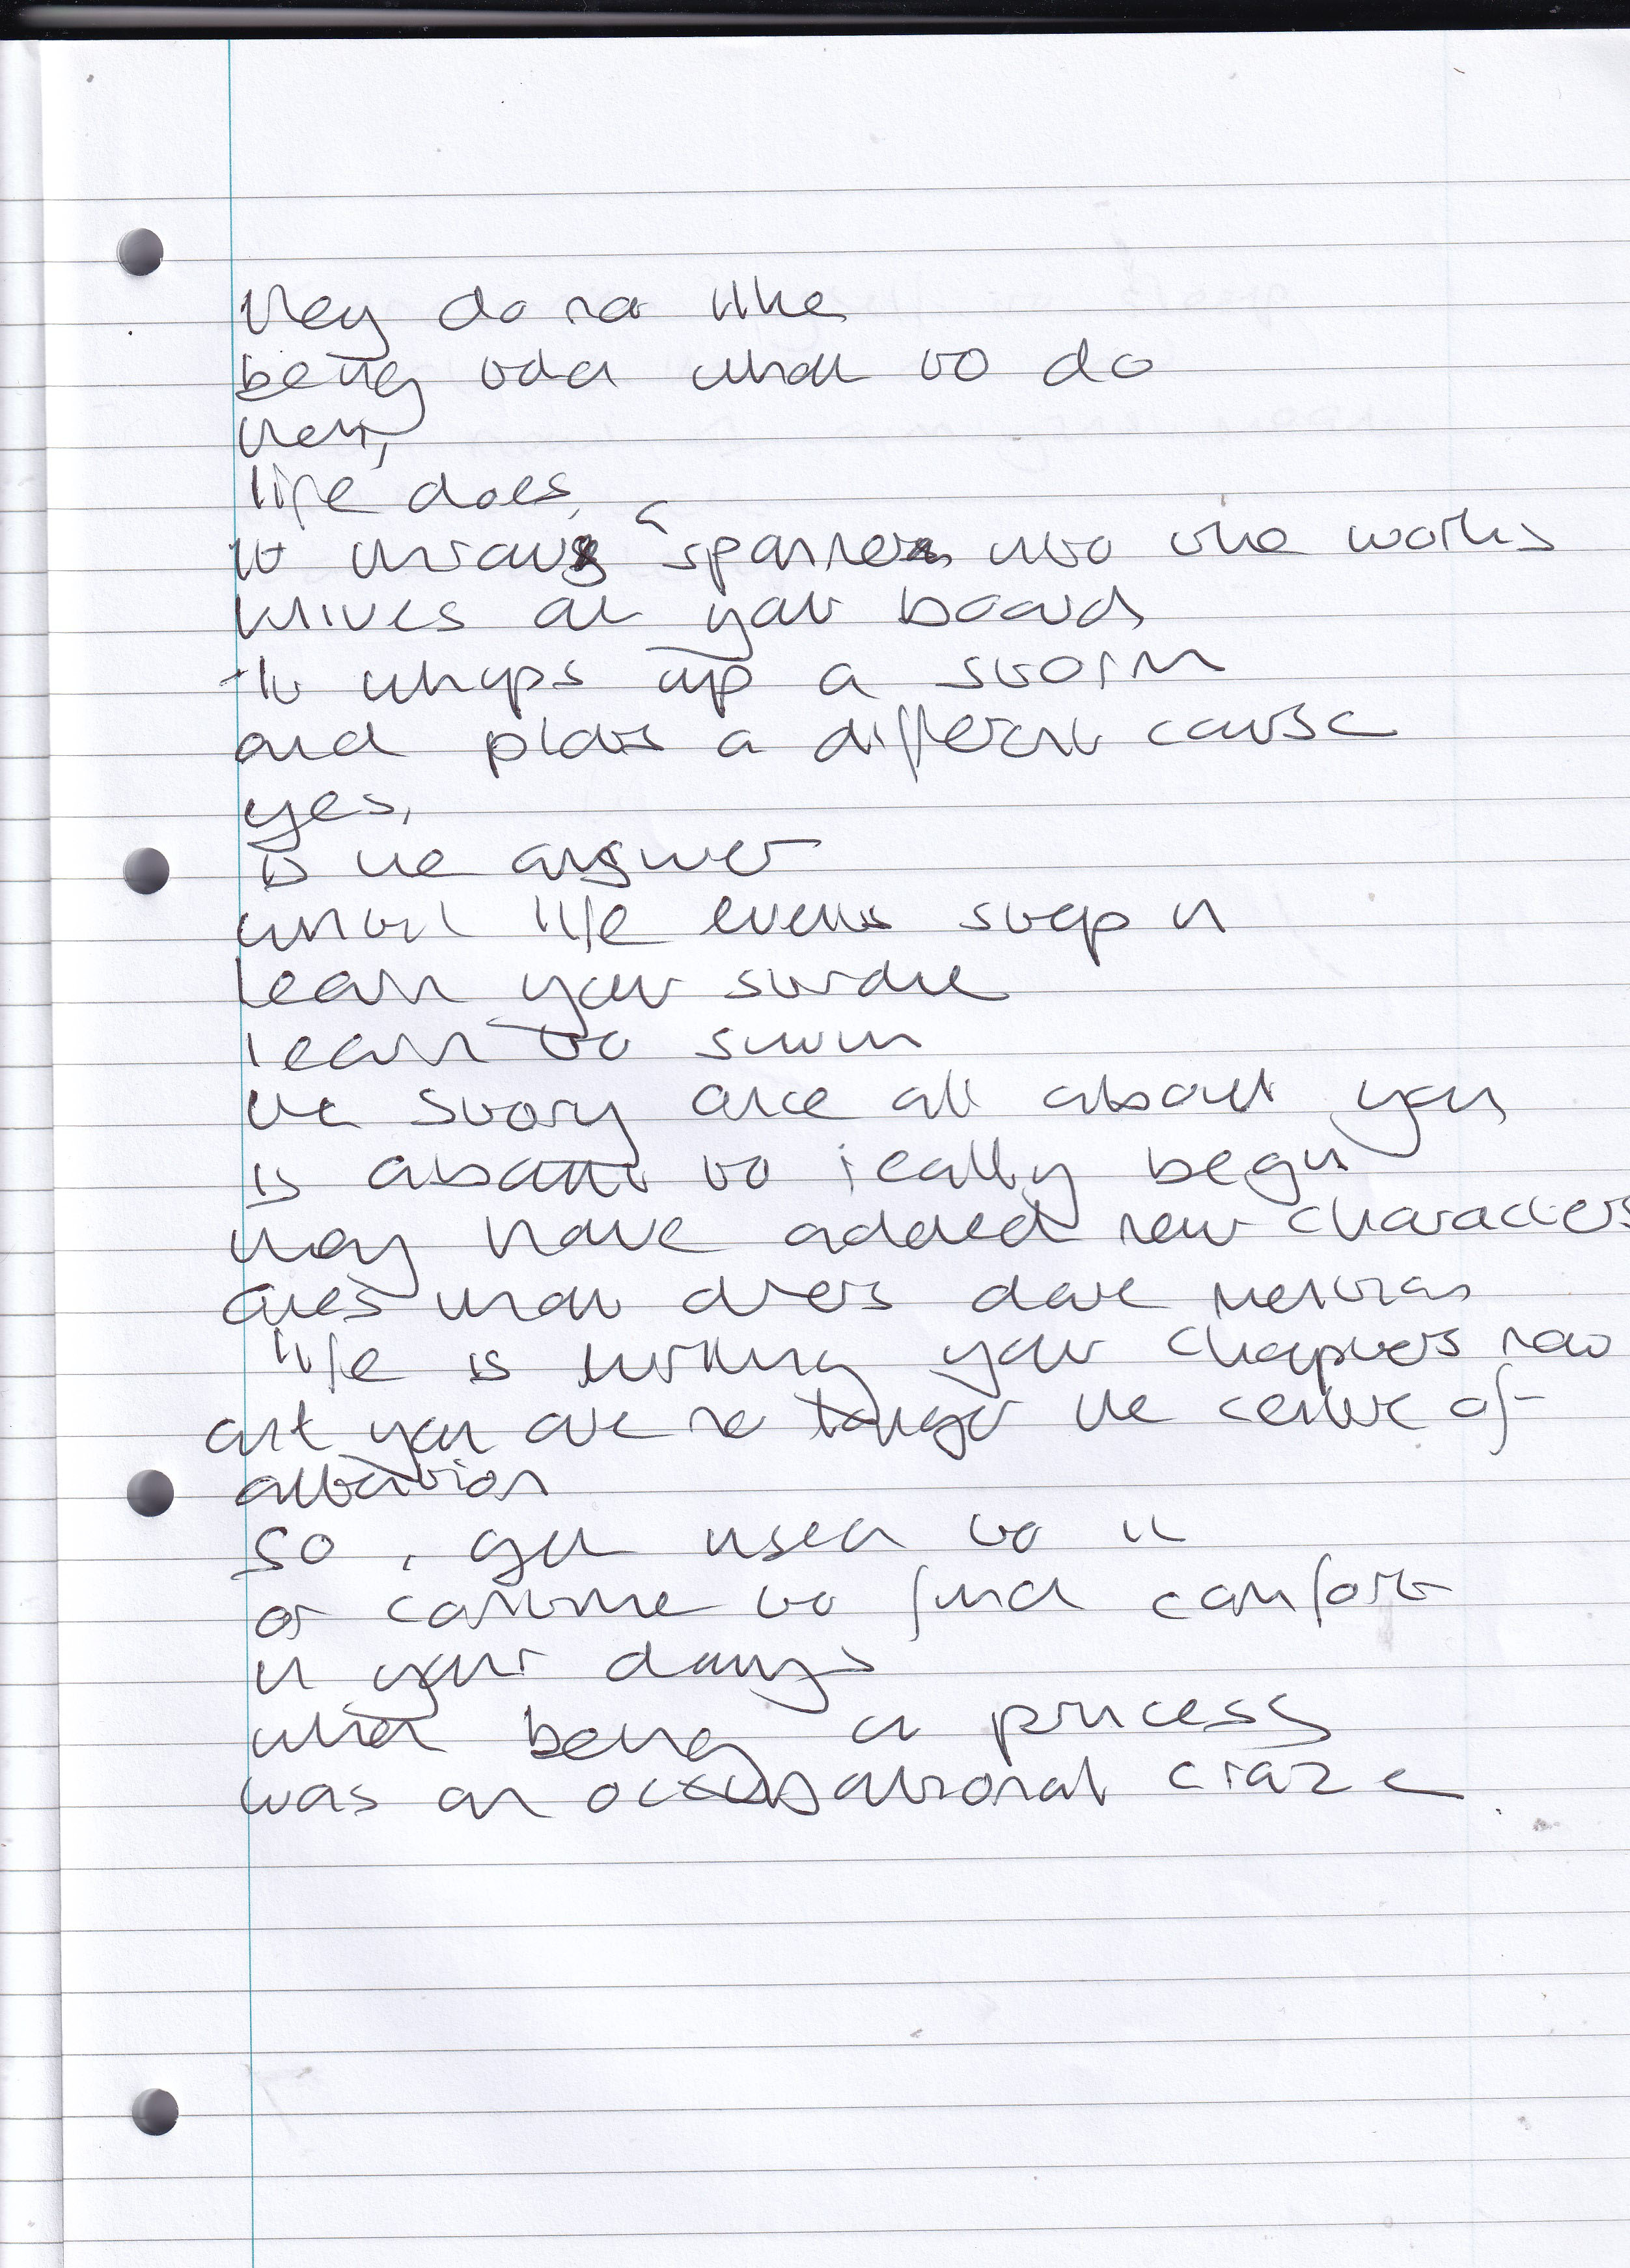 they do not like
being told what to do
then,
life does,
it throws a spanner into the works
knives at your board
it whips up a storm
and plots a different course
yes,
is the answer
until life events step in
learn your stroke
learn to swim
the story once all about you
is about to really begin
they have added new characters
ones that others dare
life is writing your chapters now
and you are no longer the centre of
attention
so, get used to it
or continue to find comfort
in your days
when being a princess
was an occupational craze.